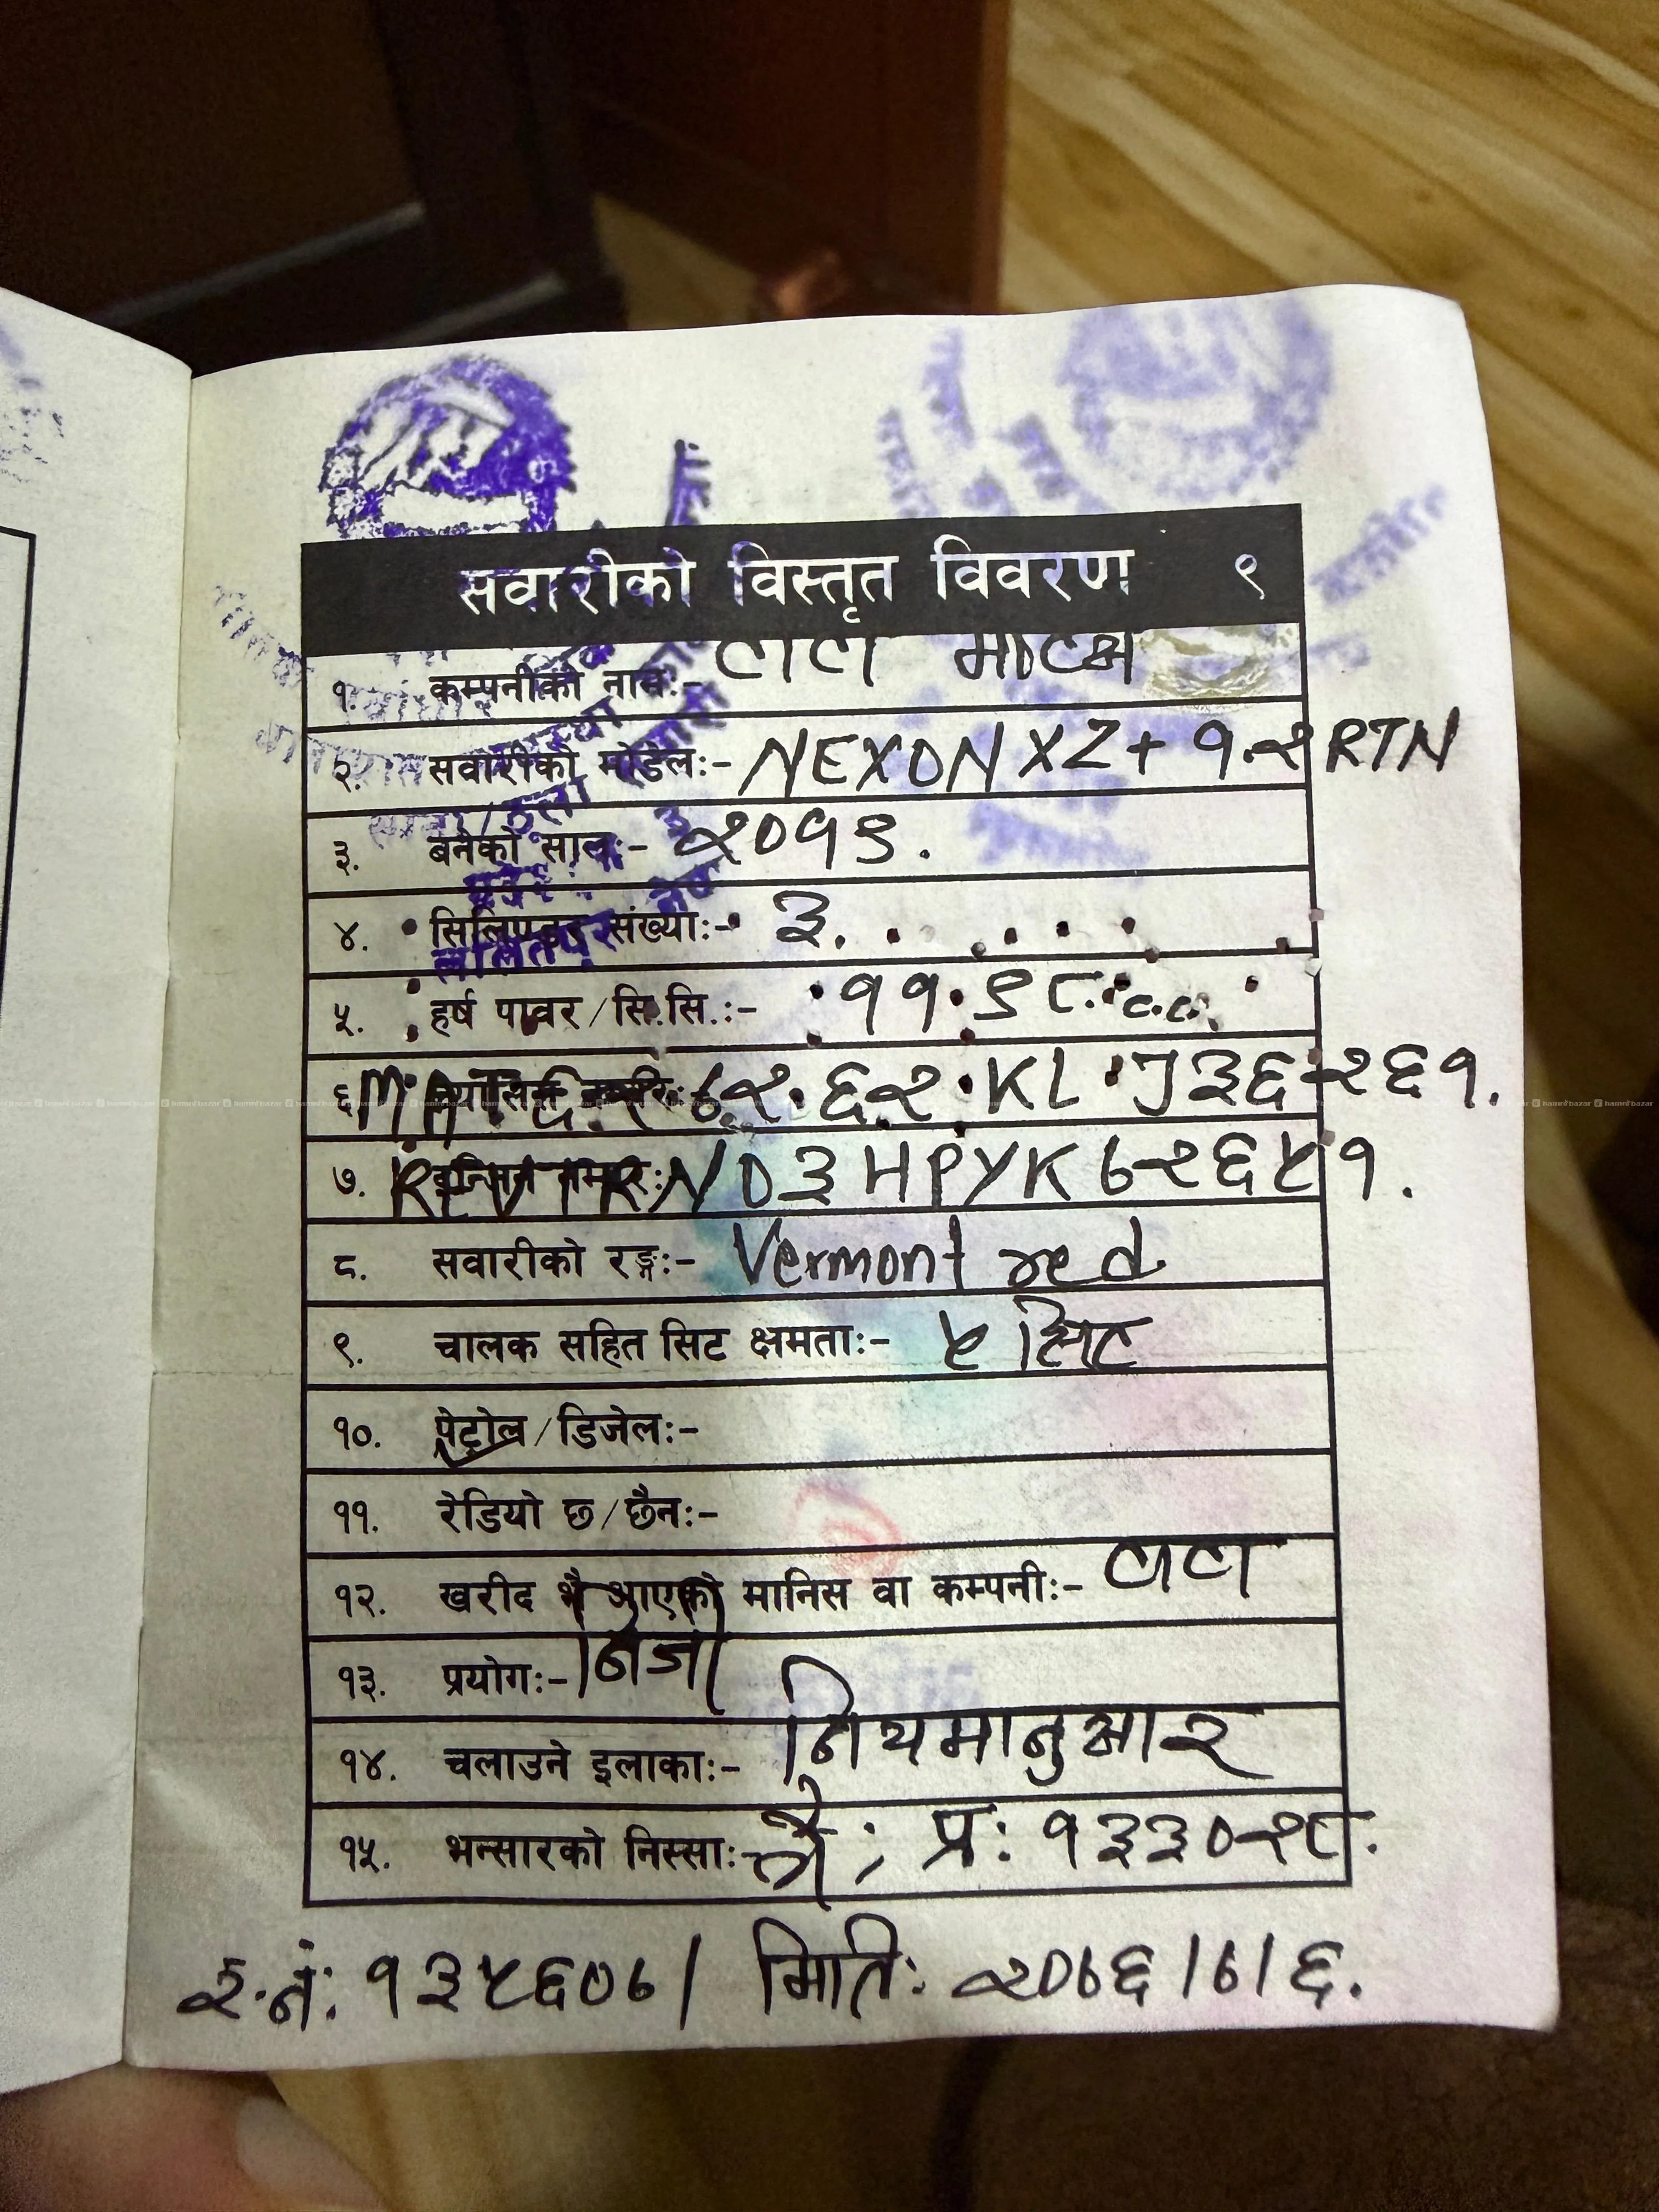 सवारीको विस्तृत विवरण ९
१. कम्पनीको नामः- टाटा मोटर्स
२. सवारीको मोडेलः- NEXON XZ+ १.२ RTN
३. बनेको सालः- २०१९.
४. सिलिण्डर संख्याः- ३.
५. हर्ष पावर/सि.सि.ः- ११.९८.c.c.
६. ७२.६२.KL.J३६२६१.
७. REVTRN0३HPYK७२६५१.
८. सवारीको रङ्गः- Vermont red
९. चालक सहित सिट क्षमताः- ५ सिट
१०. पेट्रोल/डिजेलः-
११. रेडियो छ/छैनः-
१२. खरीद भै आएको मानिस वा कम्पनीः- टाटा
१३. प्रयोगः- निजी
१४. चलाउने इलाकाः- नियमानुसार
१५. भन्सारको निस्साः- प्र: १३३०२८.
र.नं: १३५६०७। मिति: २०७६।७।६.
ललितपुर
hamrobazar